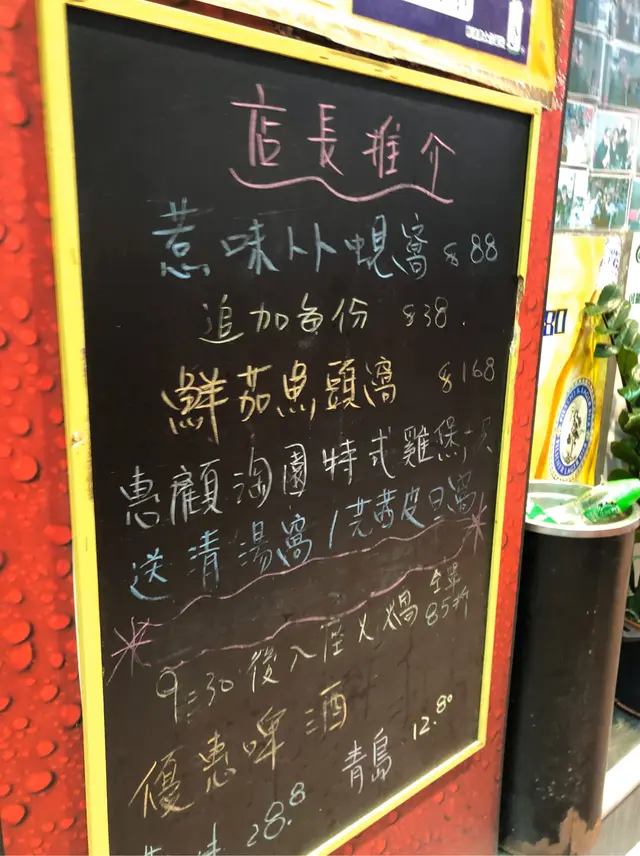 店長推介
惹味人人蜆窩 $88
追加每份 $38.
鮮茄魚頭窩 $168
惠顧淘園特式雞煲一只
送清湯窩/芫茜皮旦窩
9:30後入座火鍋 全單 85折
優惠啤酒
青島 12.80
28.8
80